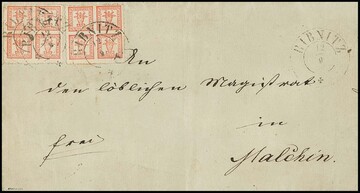 RIBNITZ
RIBNITZ
An
den löblichen Magistrat
frei
in
Malchin.